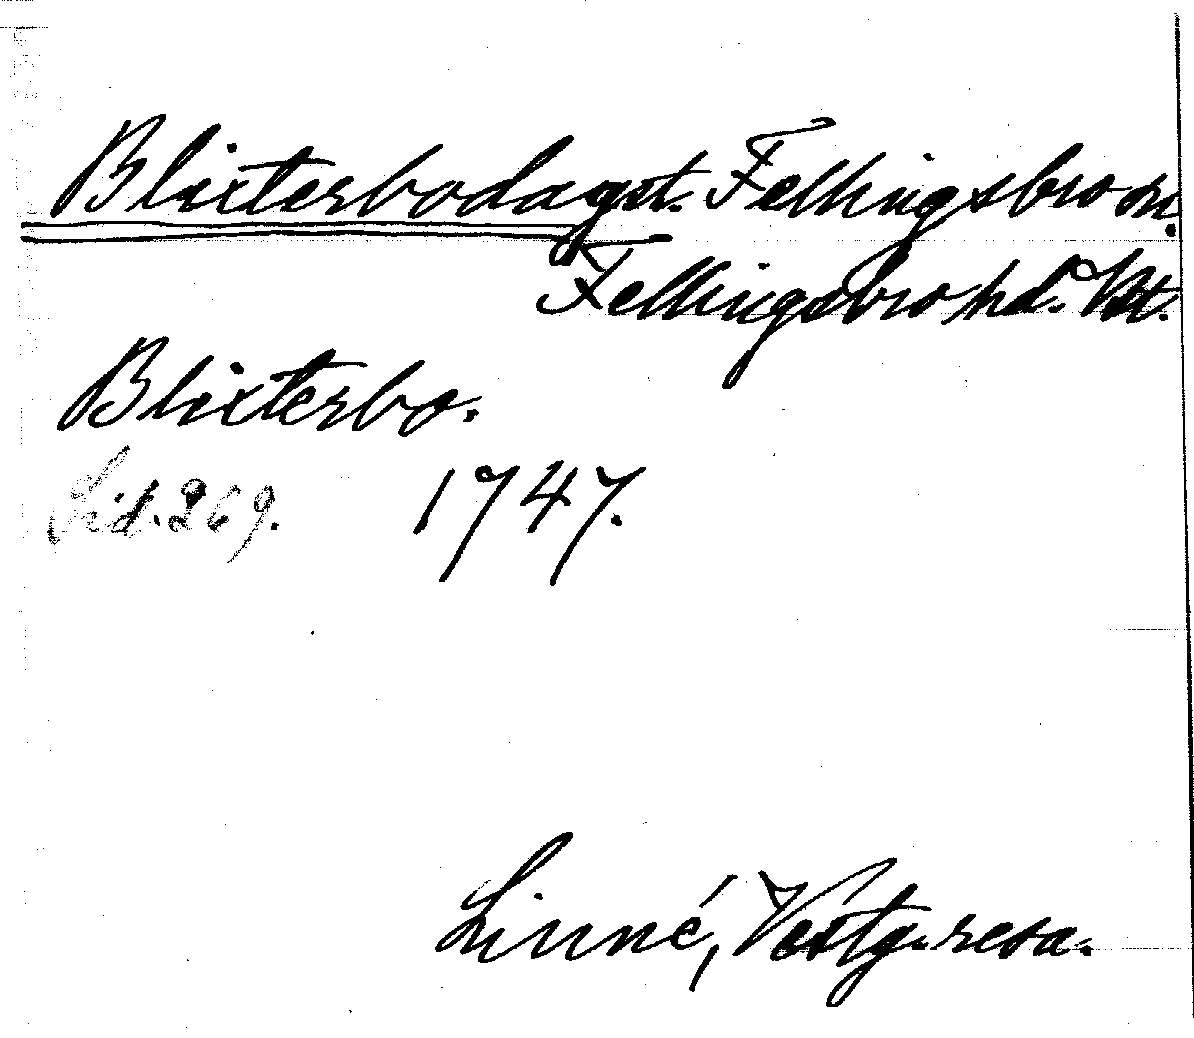 Blixterboda gst. Fellingsbro sn.
Fellingsbro hd. Vst.
Blixterbo.
Sid. 269. 1747.
Linné, Västg. resa.